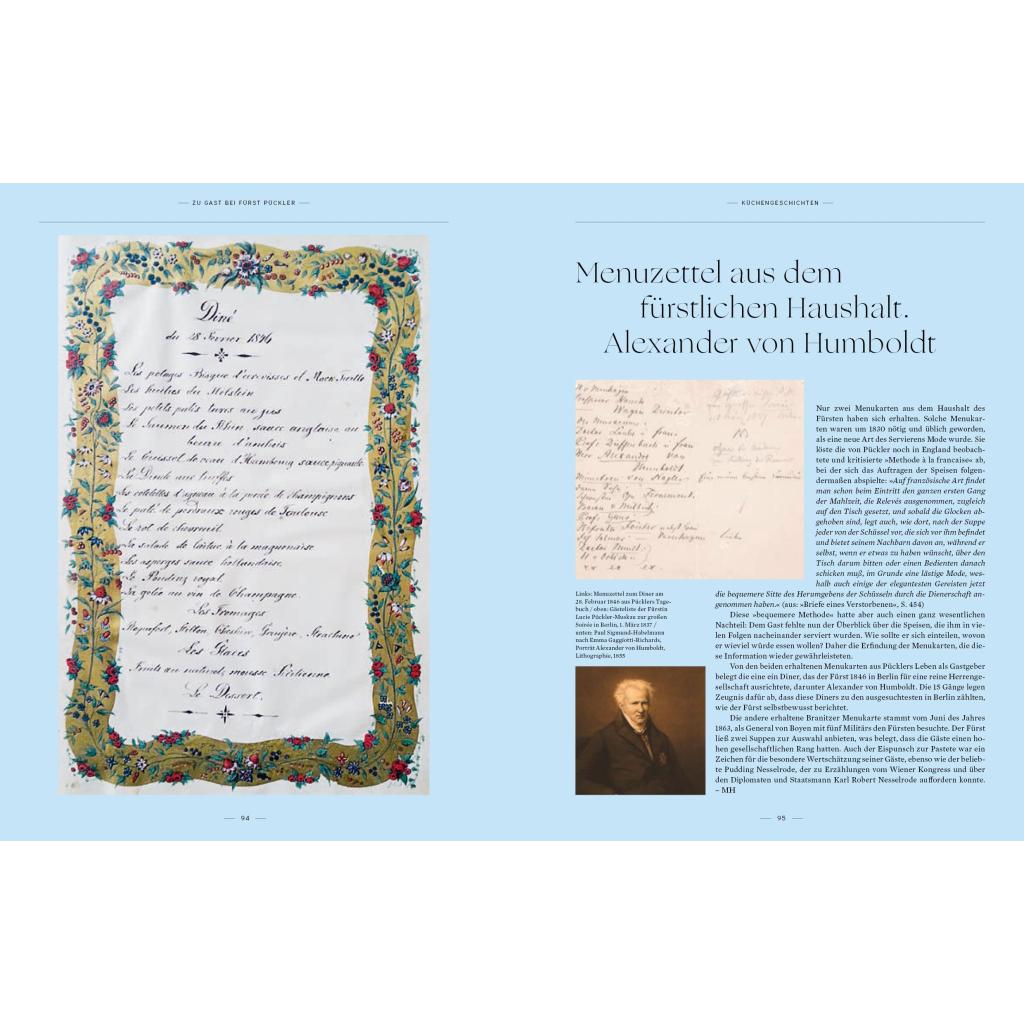 ZU GAST BEI FÜRST PÜCKLER
Diné
du 28 Fevrier 1846
Les potages Bisque d'ecrevisses et Mock Turtle
Les huitres du Holstein
Les petits patés
au jus
Le Saumon du Rhin, sauce anglaise au
beurre d'anchois
Le Cuissot de veau d'Hambourg sauce piquante
La Dinde aux truffes
Les cotelettes d'agneau à la purée de Champignons
Le paté de perdreaux rouges de Toulouse
Le rot de chevreuil
La salade de laitue à la magnonaise
Les asperges sauce hollandaise
Le Pouding royal
La gelée au vin de Champagne.
Les Fromages
Roquefort, Stilton, Chester, Gruyère, Strachino
Les Glaces
Fruits au naturel, mousse
Le Dessert.
94
KÜCHENGESCHICHTEN
Menuzettel aus dem
fürstlichen Haushalt.
Alexander von Humboldt
Nur zwei Menukarten aus dem Haushalt des
Fürsten haben sich erhalten. Solche Menukar-
ten waren um 1830 nötig und üblich geworden,
als eine neue Art des Servierens Mode wurde. Sie
löste die von Pückler noch in England beobach-
tete und kritisierte »Methode à la francaise« ab,
bei der sich das Auftragen der Speisen folgen-
dermaßen abspielte: »Auf französische Art findet
man schon beim Eintritt den ganzen ersten Gang
der Mahlzeit, die Relevés ausgenommen, zugleich
auf den Tisch gesetzt, und sobald die Glocken ab-
gehoben sind, legt auch, wie dort, nach der Suppe
jeder von der Schüssel vor, die sich vor ihm befindet
und bietet seinem Nachbarn davon an, während er
selbst, wenn er etwas zu haben wünscht, über den
Tisch darum bitten oder einen Bedienten danach
schicken muß, im Grunde eine lästige Mode, wes-
halb auch einige der elegantesten Gereisten jetzt
die bequemere Sitte des Herumgebens der Schüsseln durch die Dienerschaft an-
genommen haben.« (aus: »Briefe eines Verstorbenen«, S. 454)
Diese »bequemere Methode« hatte aber auch einen ganz wesentlichen
Nachteil: Dem Gast fehlte nun der Überblick über die Speisen, die ihm in vie-
len Folgen nacheinander serviert wurden. Wie sollte er sich einteilen, wovon
er wieviel würde essen wollen? Daher die Erfindung der Menukarten, die die-
se Information wieder gewährleisteten.
Von den beiden erhaltenen Menukarten aus Pücklers Leben als Gastgeber
belegt die eine ein Diner, das der Fürst 1846 in Berlin für eine reine Herrenge-
sellschaft ausrichtete, darunter Alexander von Humboldt. Die 15 Gänge legen
Zeugnis dafür ab, dass diese Diners zu den ausgesuchtesten in Berlin zählten,
wie der Fürst selbstbewusst berichtet.
Die andere erhaltene Branitzer Menukarte stammt vom Juni des Jahres
1863, als General von Boyen mit fünf Militärs den Fürsten besuchte. Der Fürst
ließ zwei Suppen zur Auswahl anbieten, was belegt, dass die Gäste einen ho-
hen gesellschaftlichen Rang hatten. Auch der Eispunsch zur Pastete war ein
Zeichen für die besondere Wertschätzung seiner Gäste, ebenso wie der belieb-
te Pudding Nesselrode, der zu Erzählungen vom Wiener Kongress und über
den Diplomaten und Staatsmann Karl Robert Nesselrode auffordern konnte.
– MH
Links: Menuzettel zum Diner am
28. Februar 1846 aus Pücklers Tage-
buch / oben: Gästeliste der Fürstin
Lucie Pückler-Muskau zur großen
Soirée in Berlin, 1. März 1837 /
unten: Paul Sigmund Habelmann
nach Emma Gaggiotti-Richards,
Porträt Alexander von Humboldt,
Lithographie, 1855
95